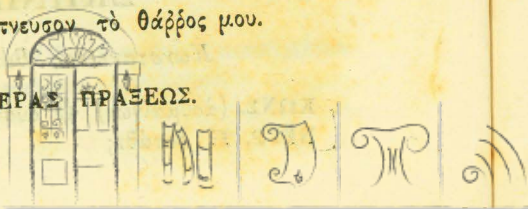 πνευσον τὸ θάῤῥος μου.
ΕΡΑΣ ΠΡΑΞΕΩΣ.